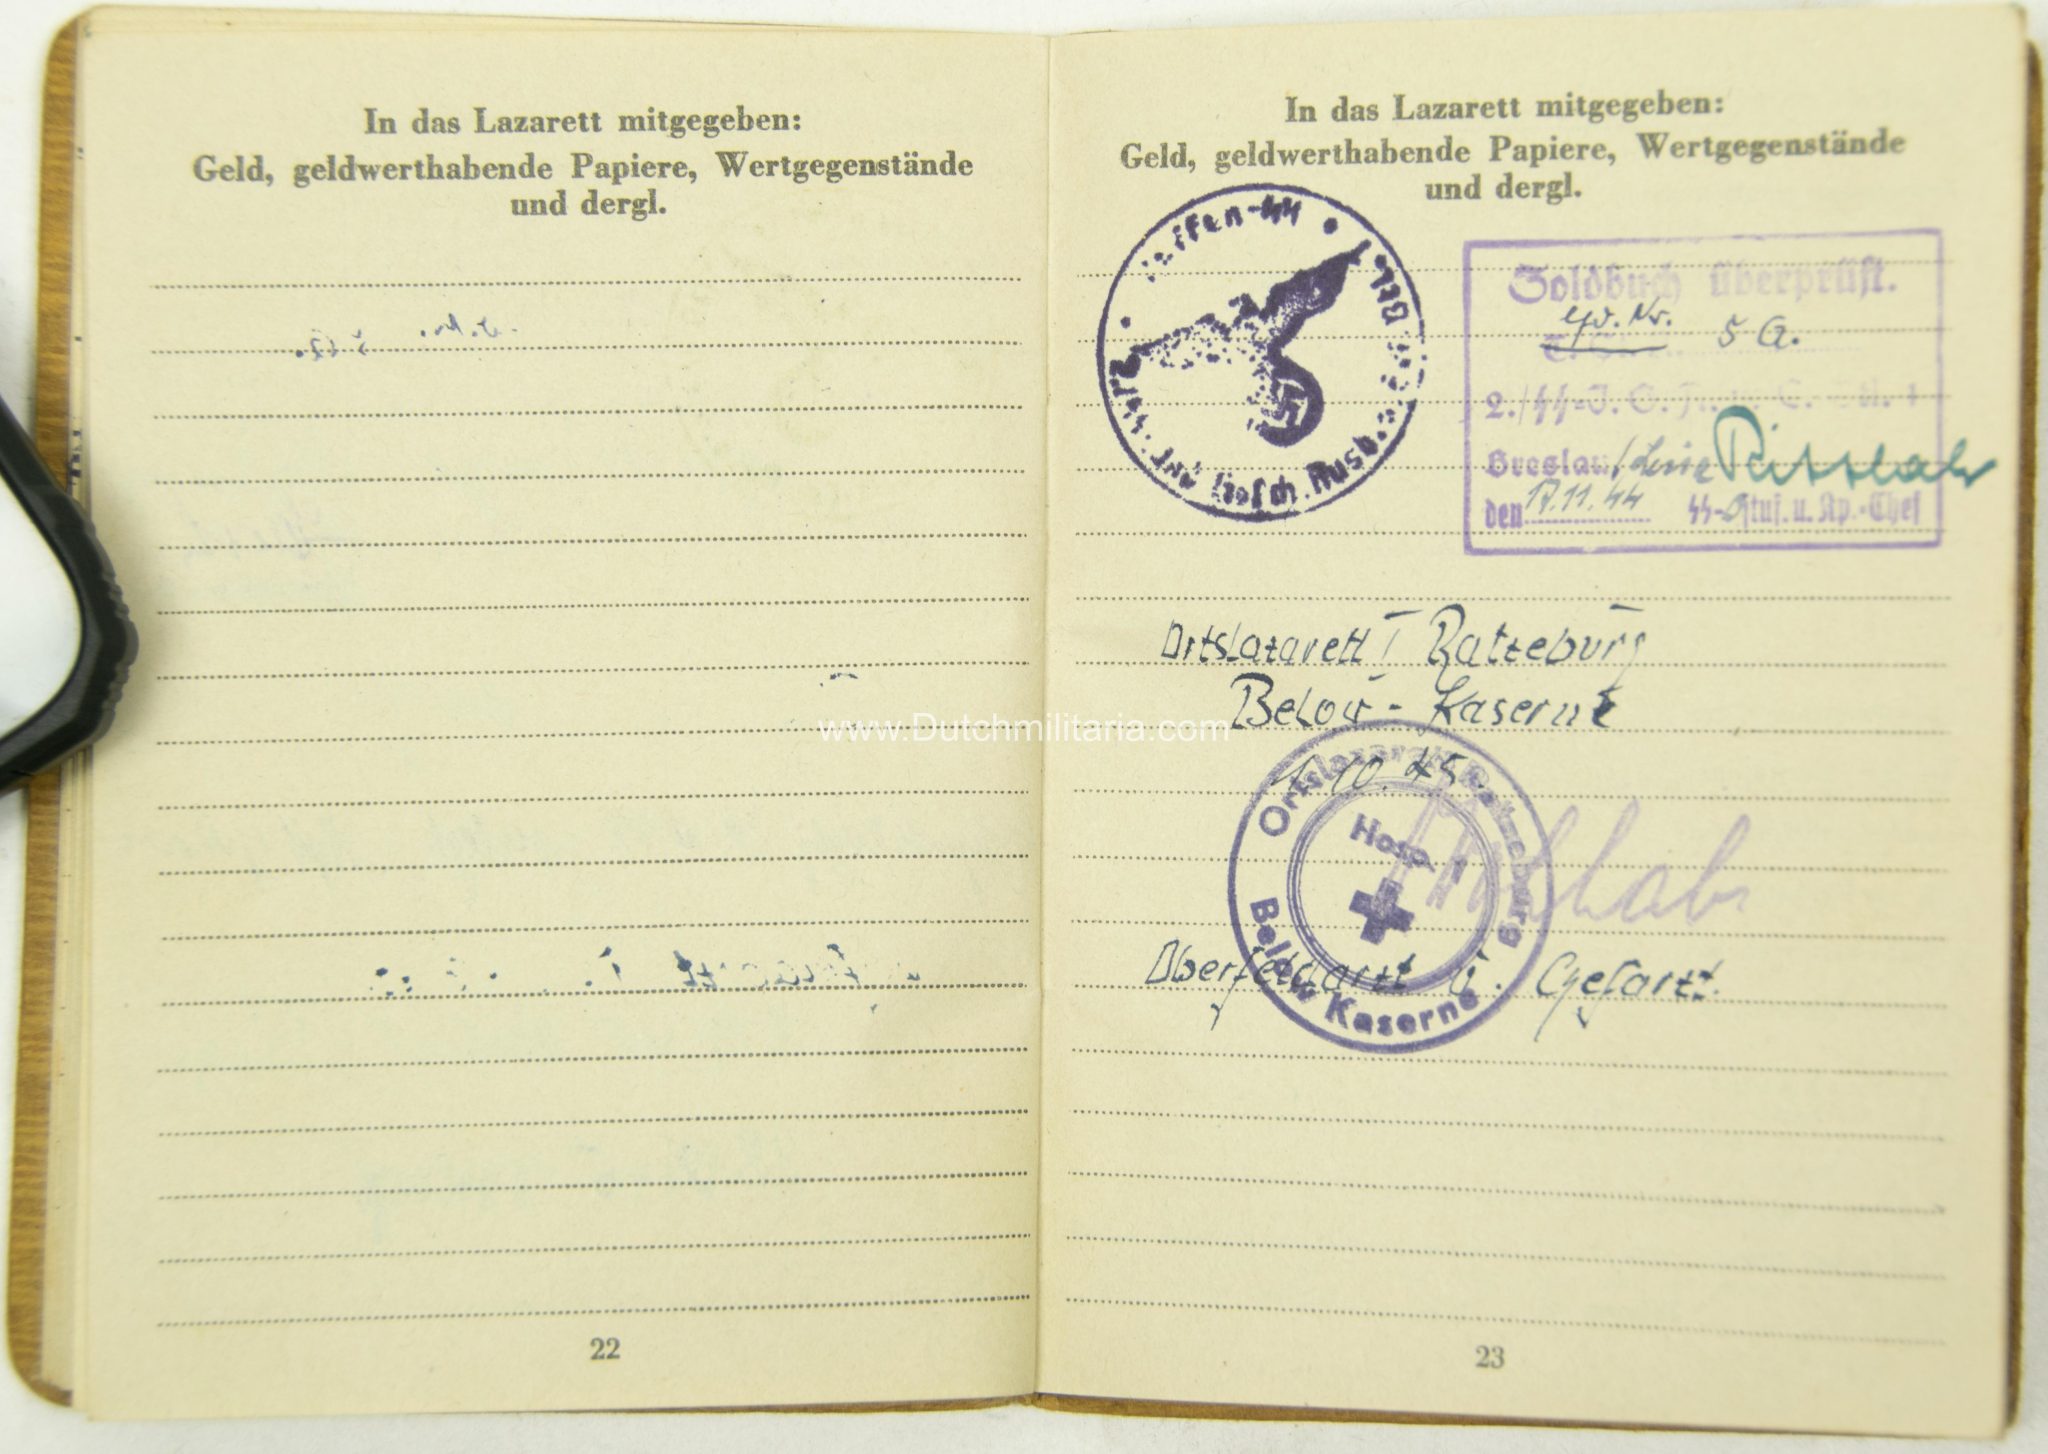 In das Lazarett mitgegeben:
Geld, geldwerthabende Papiere, Wertgegenstände
und dergl.
22
In das Lazarett mitgegeben:
Geld, geldwerthabende Papiere, Wertgegenstände
und dergl.
Soldbuch überprüft.
5 G.
2./SS-
Breslau
den 17.11.44 SS-Ostuf. u. Kp.-Chef
Ortslazarett I Ratzeburg
Below-Kaserne
1.10.45.
Ortslazarett Ratzeburg
Hosp. I
Below Kaserne
Oberfeldarzt u. Chefarzt.
23
www.Dutchmilitaria.com